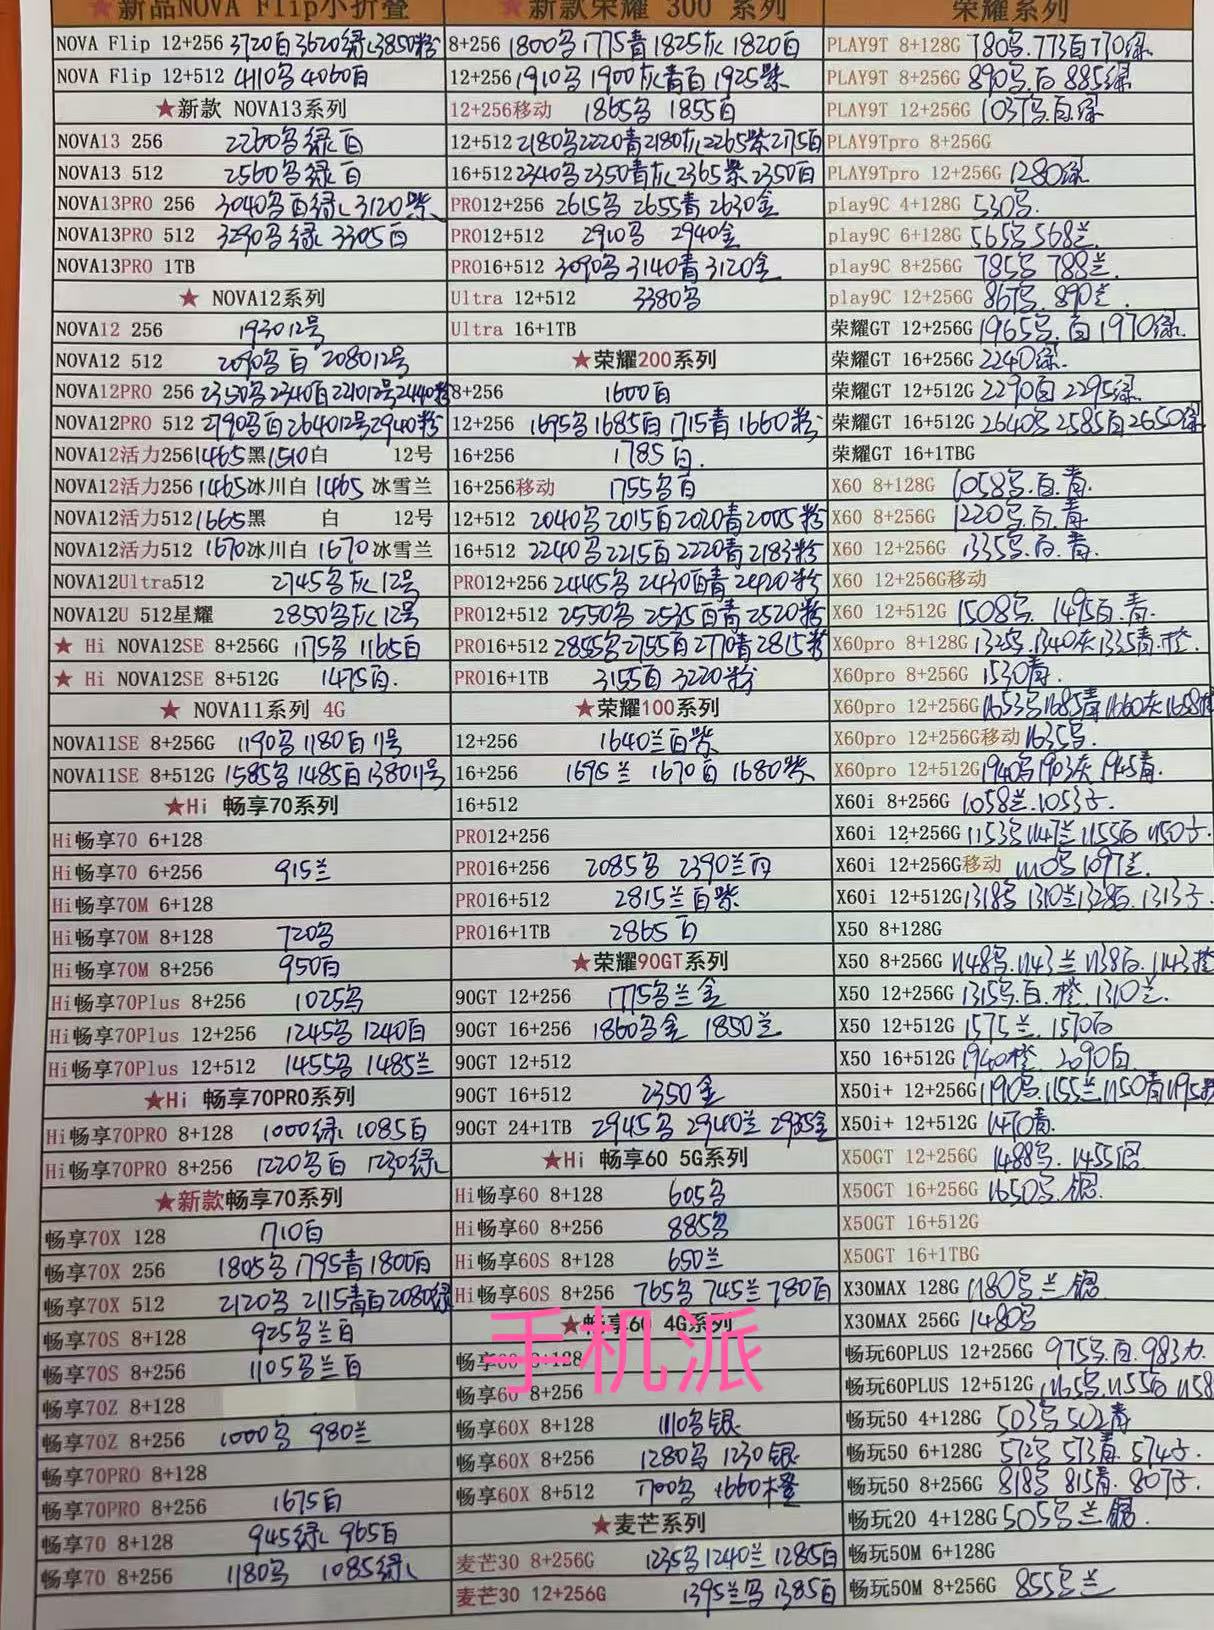 ★新品NOVA Flip小折叠
NOVA Flip 12+256 3720白3620绿3850粉
NOVA Flip 12+512 4110乌4060白
★新款 NOVA13系列
NOVA13 256 2260乌绿白
NOVA13 512 2560乌绿白
NOVA13PRO 256 3040乌白绿 3120紫
NOVA13PRO 512 3290乌绿 3305白
NOVA13PRO 1TB
★ NOVA12系列
NOVA12 256 1930 12号
NOVA12 512 2090乌白 2080 12号
NOVA12PRO 256 2350乌2340白2210 12号2440粉
NOVA12PRO 512 2790乌白2640 12号2940粉
NOVA12活力256 1465黑1510白 12号
NOVA12活力256 1465冰川白 1465 冰雪兰
NOVA12活力512 1665黑 白 12号
NOVA12活力512 1670冰川白 1670 冰雪兰
NOVA12Ultra512 2745乌灰 12号
NOVA12U 512星耀 2850乌灰 12号
★ Hi NOVA12SE 8+256G 1175乌 1165白
★ Hi NOVA12SE 8+512G 1475白.
★ NOVA11系列 4G
NOVA11SE 8+256G 1190乌 1180白 11号
NOVA11SE 8+512G 1585乌 1485白 1380 11号
★Hi 畅享70系列
Hi畅享70 6+128
Hi畅享70 6+256 915兰
Hi畅享70M 6+128
Hi畅享70M 8+128 720乌
Hi畅享70M 8+256 950白
Hi畅享70Plus 8+256 1025乌
Hi畅享70Plus 12+256 1245乌 1240白
Hi畅享70Plus 12+512 1455乌 1485兰
★Hi 畅享70PRO系列
Hi畅享70PRO 8+128 1000绿 1085白
Hi畅享70PRO 8+256 1220乌白 1230绿
★新款畅享70系列
畅享70X 128 1710白
畅享70X 256 1805乌 1795青1800白
畅享70X 512 2120乌 2115青白2080绿
畅享70S 8+128 925乌兰白
畅享70S 8+256 1105乌兰白
畅享70Z 8+128
畅享70Z 8+256 1000乌 980兰
畅享70PRO 8+128
畅享70PRO 8+256 1675白
畅享70 8+128 945绿 965白
畅享70 8+256 1180乌 1085绿
★新款荣耀 300 系列
8+256 1800乌1775青1825灰1820白
12+256 1910乌1900灰青白1925紫
12+256移动 1865乌 1855白
12+512 2180乌2220青2180灰2265紫2175白
16+512 2340乌2350青灰2365紫2350白
PRO12+256 2615乌 2655青 2630金
PRO12+512 2910乌 2940金
PRO16+512 3090乌3140青3120金
Ultra 12+512 3380乌
Ultra 16+1TB
★荣耀200系列
8+256 1600白
12+256 1695乌1685白1715青1660粉
16+256 1785白.
16+256移动 1755乌白
12+512 2040乌2015白2020青2005粉
16+512 2240乌2215白2220青2183粉
PRO12+256 2445乌 2430白青 2420粉
PRO12+512 2550乌 2535白青 2520粉
PRO16+512 2855乌2755白2770青2815粉
PRO16+1TB 3155白 3220粉
★荣耀100系列
12+256 1640兰白紫
16+256 1695兰 1670白 1680紫
16+512
PRO12+256
PRO16+256 2085乌 2390兰白
PRO16+512 2815兰白紫
PRO16+1TB 2865白
★荣耀90GT系列
90GT 12+256 1775乌兰金
90GT 16+256 1860乌金 1850兰
90GT 12+512
90GT 16+512 2350金
90GT 24+1TB 2945乌 2940兰 2935金
★Hi 畅享60 5G系列
Hi畅享60 8+128 605乌
Hi畅享60 8+256 885乌
Hi畅享60S 8+128 650兰
Hi畅享60S 8+256 765乌 745兰 780白
★畅享60 4G系列
手机派
畅享60 8+128
畅享60 8+256
畅享60X 8+128 1110乌银
畅享60X 8+256 1280乌 1230银
畅享60X 8+512 1700乌 1660橙
★麦芒系列
麦芒30 8+256G 1235乌1240兰1285白
麦芒30 12+256G 1395兰乌1385白
荣耀系列
PLAY9T 8+128G 780乌.773白770绿
PLAY9T 8+256G 890乌.白 885绿
PLAY9T 12+256G 1037乌.白.绿
PLAY9Tpro 8+256G
PLAY9Tpro 12+256G 1280绿
play9C 4+128G 530乌.
play9C 6+128G 565乌568兰
play9C 8+256G 785乌 788兰.
play9C 12+256G 867乌. 890兰.
荣耀GT 12+256G 1965乌.白1970绿.
荣耀GT 16+256G 2240绿.
荣耀GT 12+512G 2290白 2295绿
荣耀GT 16+512G 2640乌 2585白2650绿
荣耀GT 16+1TBG
X60 8+128G 1058乌.白.青.
X60 8+256G 1220乌.白.青
X60 12+256G 1335乌.白.青.
X60 12+256G移动
X60 12+512G 1508乌. 1495白.青.
X60pro 8+128G 1325乌.1340灰1335青.橙.
X60pro 8+256G 1530青.
X60pro 12+256G 1653乌1685青1660灰1658橙
X60pro 12+256G移动 1635乌.
X60pro 12+512G 1940乌1903灰 1945青.
X60i 8+256G 1058兰.1053子.
X60i 12+256G 1153乌1147兰1155白 1150子.
X60i 12+256G移动 1110乌1097兰.
X60i 12+512G 1318乌 1310兰1328白.1313子.
X50 8+128G
X50 8+256G 1148乌.1143兰 1138白.1143橙
X50 12+256G 1315乌.白.橙.1310兰.
X50 12+512G 1575兰.1570白
X50 16+512G 1940橙. 2090白.
X50i+ 12+256G 1190乌.1155兰1150青1195粉
X50i+ 12+512G 1470青.
X50GT 12+256G 1488乌. 1455银
X50GT 16+256G 1650乌.银.
X50GT 16+512G
X50GT 16+1TBG
X30MAX 128G 1180乌兰.银
X30MAX 256G 1480乌
畅玩60PLUS 12+256G 975乌.白.983力.
畅玩60PLUS 12+512G 1165乌.1155白 1158
畅玩50 4+128G 503乌502青
畅玩50 6+128G 572乌573青.574子.
畅玩50 8+256G 818乌 815青.807子.
畅玩20 4+128G 505乌兰.银.
畅玩50M 6+128G
畅玩50M 8+256G 855乌兰